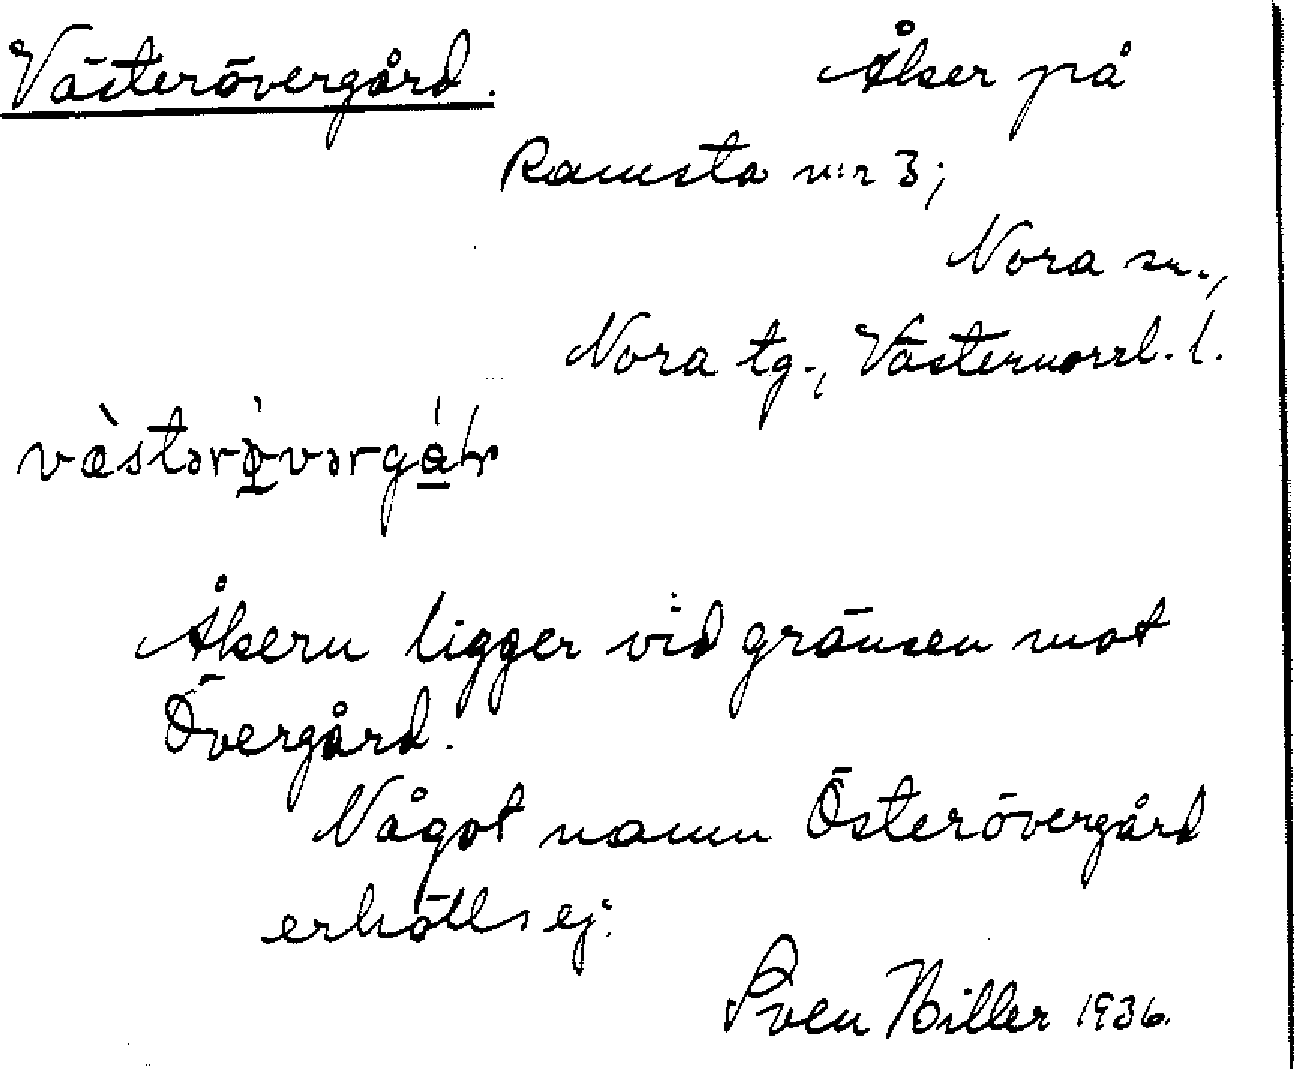 Västerövergård. Åker på
Ramsta n:r 3;
Nora sn.,
Nora tg., Västernorrl. l.
Åkern ligger vid gränsen mot
Övergård.
Något namn Österövergård
erhölls ej.
Sven Hiller 1936.